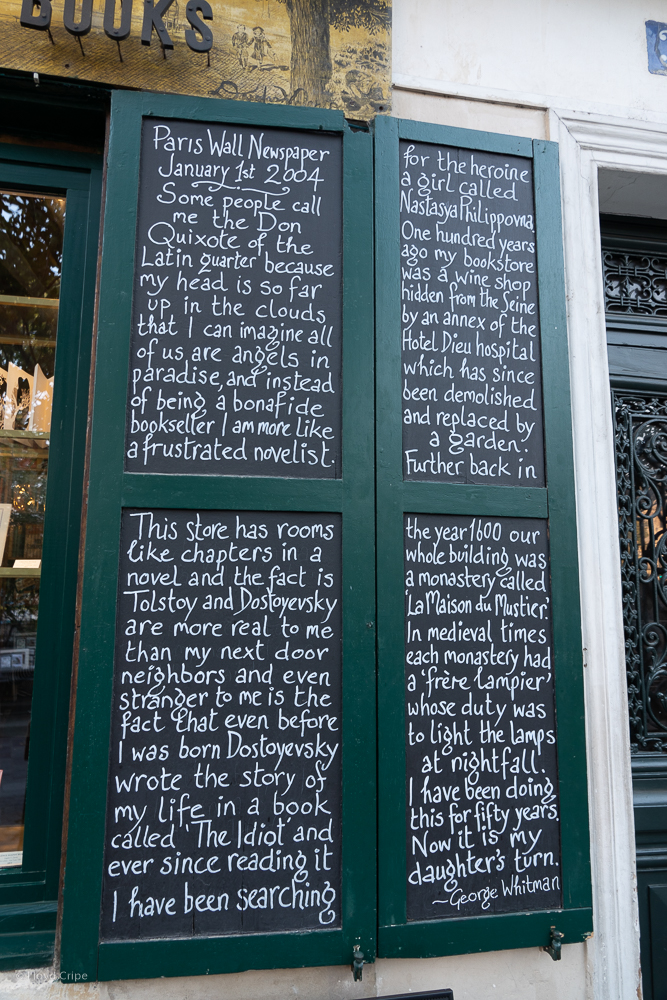 BOOKS
Paris Wall Newspaper
January 1st 2004
Some people call
me the Don
Quixote of the
Latin quarter because
my head is so far
up in the clouds
that I can imagine all
of us are angels in
paradise, and instead
of being a bonafide
bookseller I am more like
a frustrated novelist.
This store has rooms
like chapters in a
novel and the fact is
Tolstoy and Dostoyevsky
are more real to me
than my next door
neighbors and even
stranger to me is the
fact that even before
I was born Dostoyevsky
wrote the story of
my life in a book
called 'The Idiot' and
ever since reading it
I have been searching
for the heroine
a girl called
Nastasya Philippovna.
One hundred years
ago my bookstore
was a wine shop
hidden from the Seine
by an annex of the
Hotel Dieu hospital
which has since
been demolished
and replaced by
a garden.
Further back in
the year 1600 our
whole building was
a monastery called
'La Maison du Mustier'.
In medieval times
each monastery had
a 'frère lampier'
whose duty was
to light the lamps
at nightfall.
I have been doing
this for fifty years.
Now it is my
daughter's turn.
~George Whitman
© Lloyd Cripe